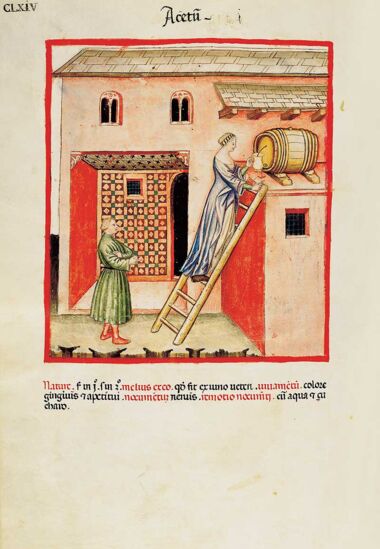 CLXIV
Acetū
Nature. f. in j̊. sṁ 2̊. melius ex eo. qđ fit ex uino ueteri. iuuamētū. colore
gingiuis ⁊ apetitui. nocumētuȝ neruis. remotio nocumēti. cū aqua ⁊ çu
charo.